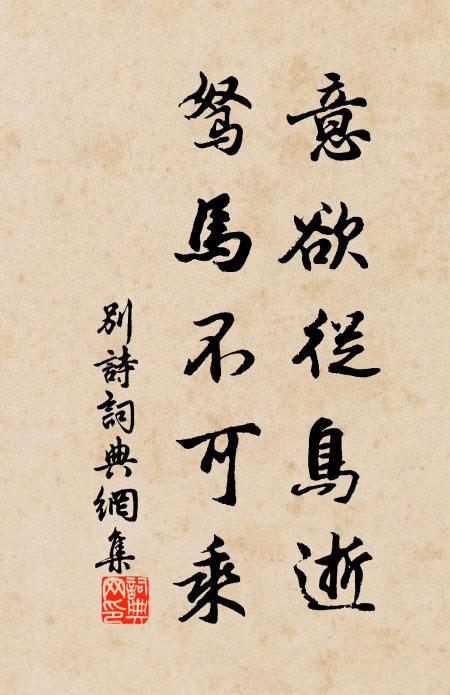 意欲從鳥逝
駑馬不可乘
別詩詞典網集
詞典
网印